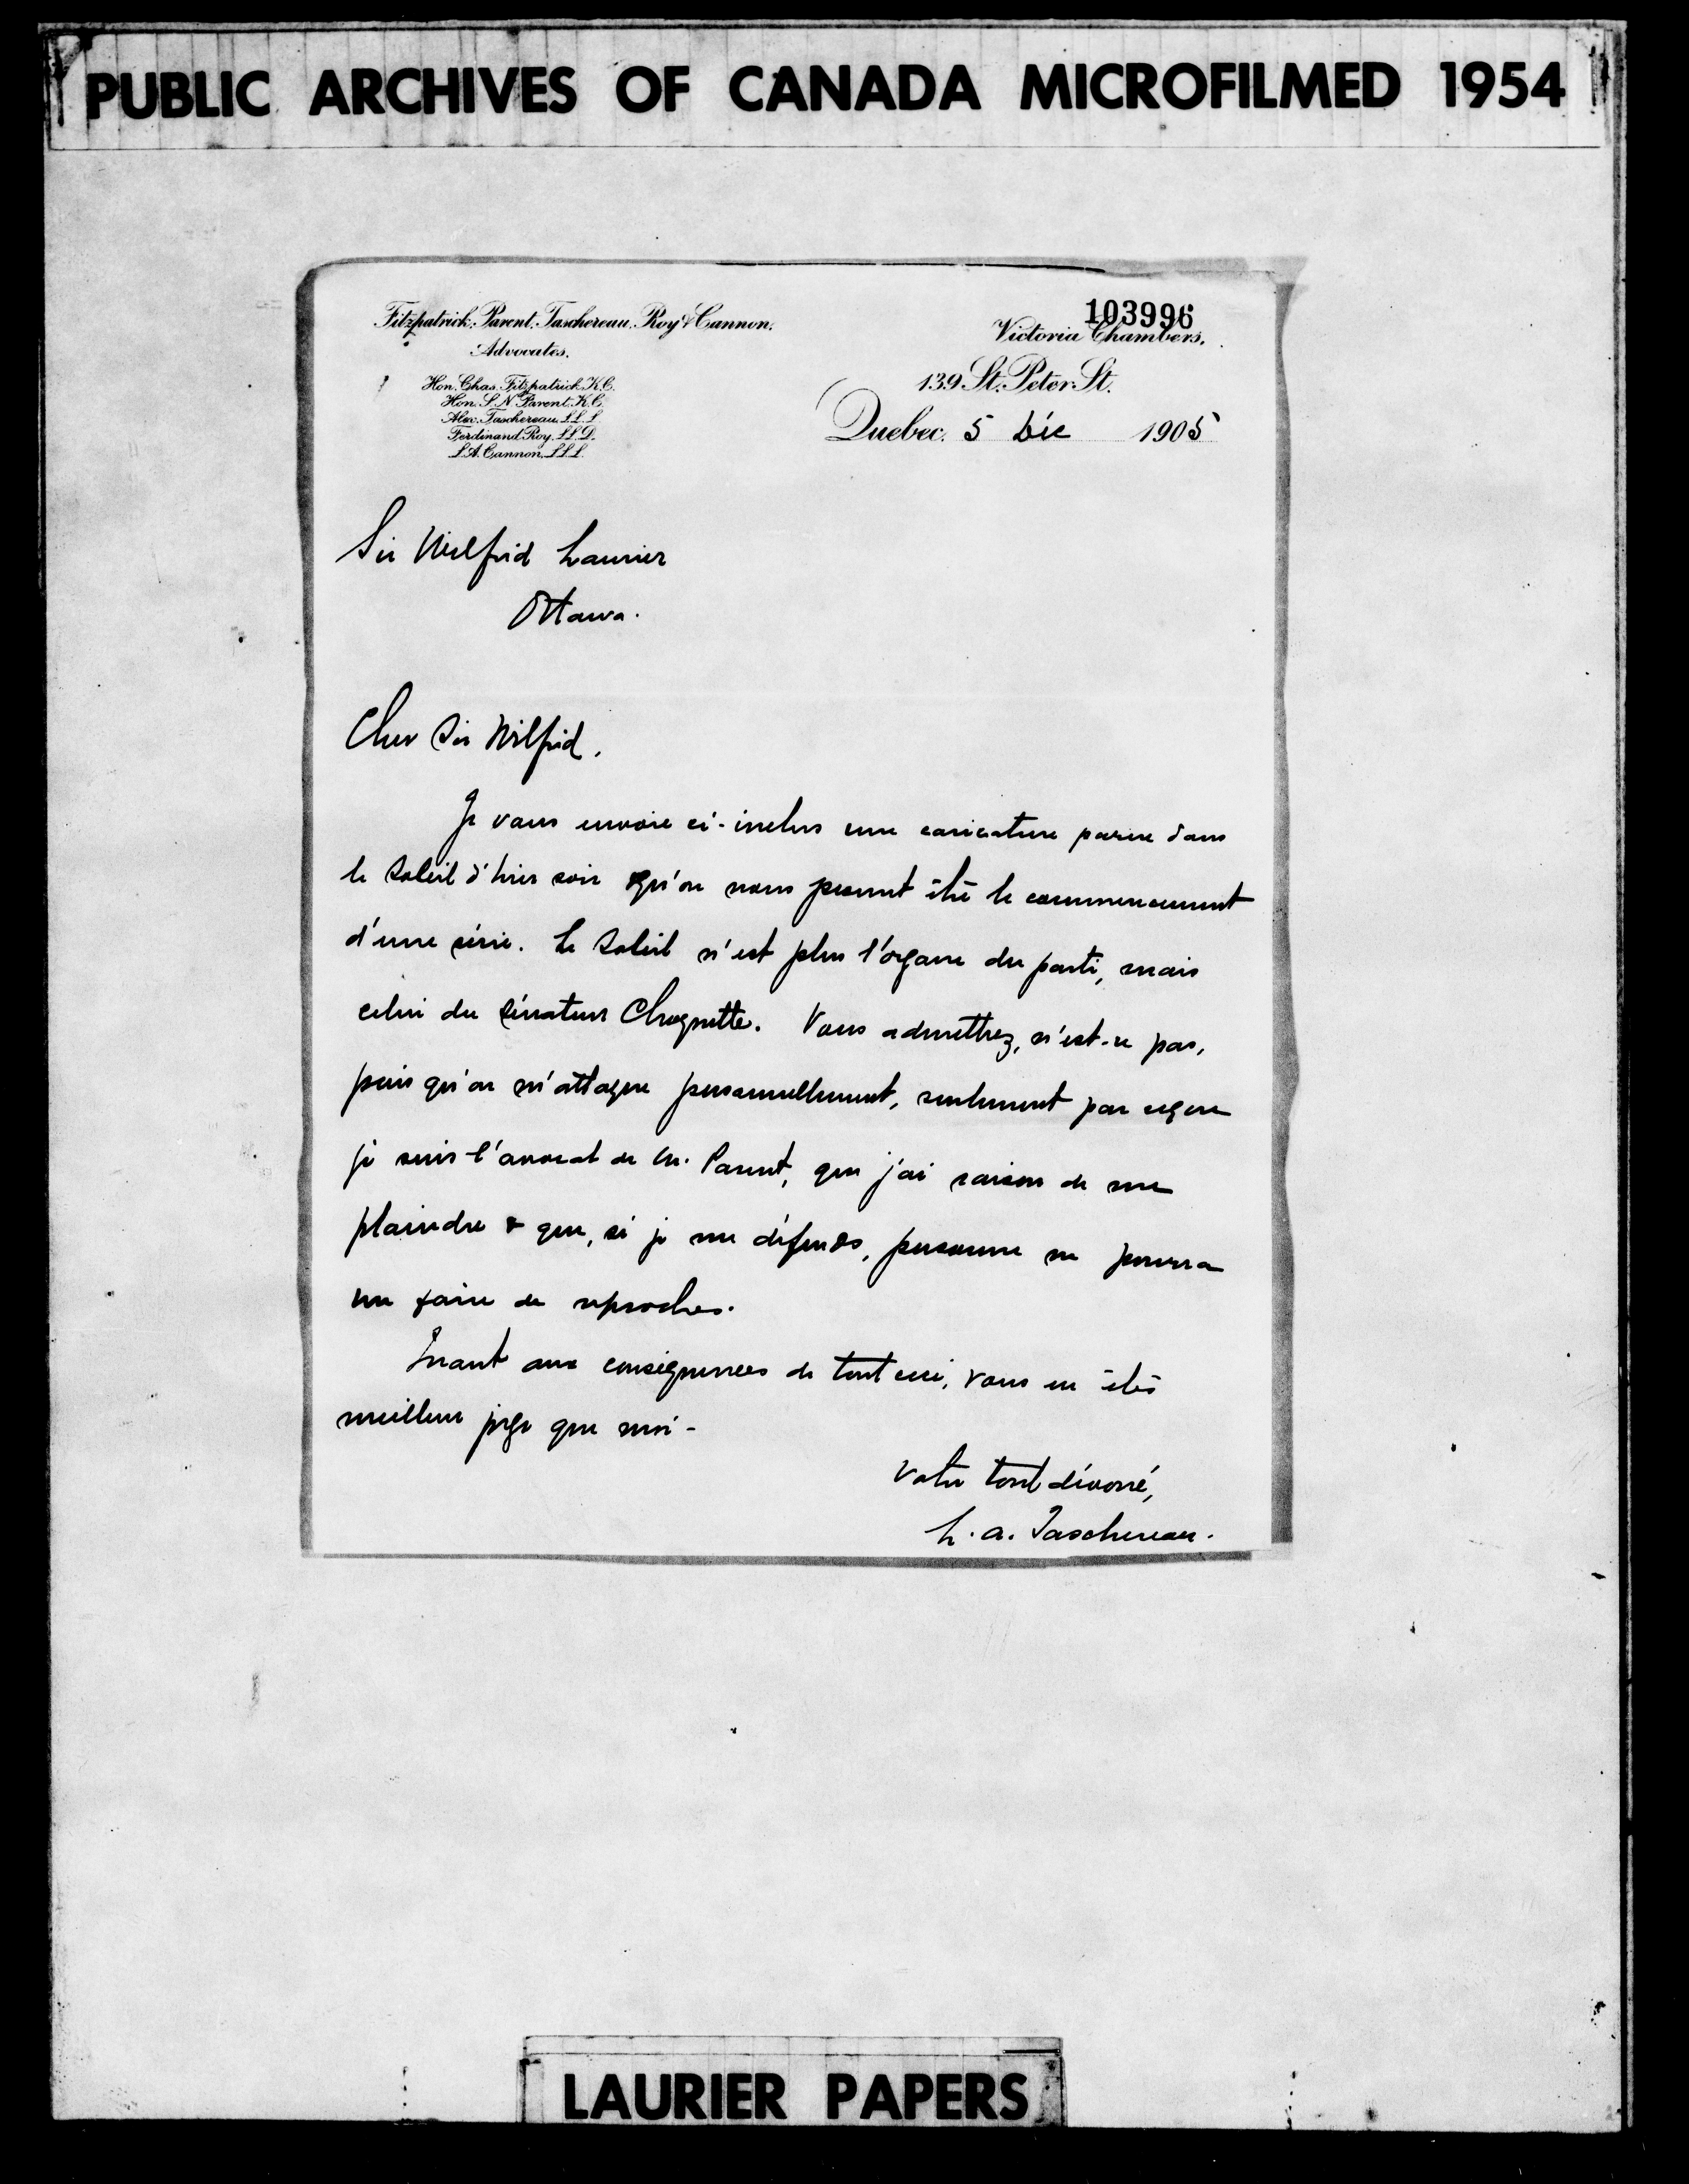 PUBLIC ARCHIVES OF CANADA MICROFILMED 1954
103996
Fitzpatrick, Parent, Taschereau, Roy & Cannon.
Advocates.
Hon. Chas. Fitzpatrick, K.C.
Hon. S. N. Parent, K.C.
Alex. Taschereau, L.L.L.
Ferdinand Roy, L.L.D.
L.A. Cannon, L.L.L.
Victoria Chambers,
139 St. Peter St.
Quebec, 5 Déc 1905
Sir Wilfrid Laurier
Ottawa.
Cher Sir Wilfrid,
Je vous envoie ci-inclus une caricature parue dans
le Soleil d'hier soir qu'on nous promet être le commencement
d'une série. Le Soleil n'est plus l'organe du parti, mais
celui du Sénateur Choquette. Vous admettrez, n'est-ce pas,
puis qu'on m'attaque personnellement, seulement parce que
je suis l'avocat de M. Parent, que j'ai raison de me
plaindre & que, si je me défends, personne ne pourra
me faire de reproches.
Quant aux conséquences de tout ceci, vous en êtes
meilleur juge que moi-
Votre tout dévoué,
L. A. Taschereau.
LAURIER PAPERS